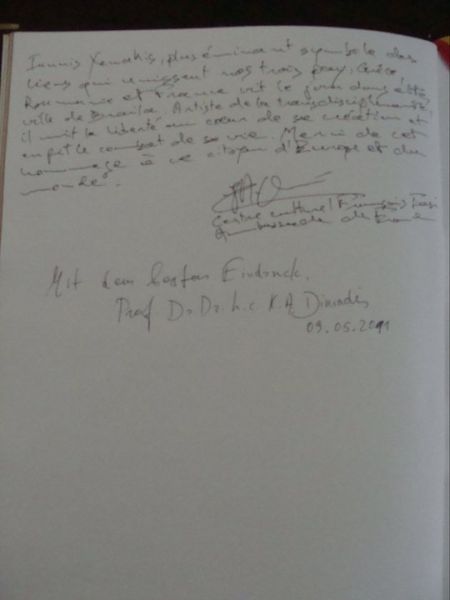 Iannis Xenakis, plus éminent symbole des
liens qui unissent nos trois pays, Grèce
Roumanie et France vit le jour dans cette
ville de Braila. Artiste de la transdisciplinarité
il mit la liberté au cœur de sa création et
en fit le combat de sa vie. Merci de cet
hommage à ce citoyen d'Europe et du
monde.
Centre culturel Français Iasi
Ambassade de France
Mit dem besten Eindruck.
Prof Dr Dr. h. c. K. A. Dimadis
09.05.2011